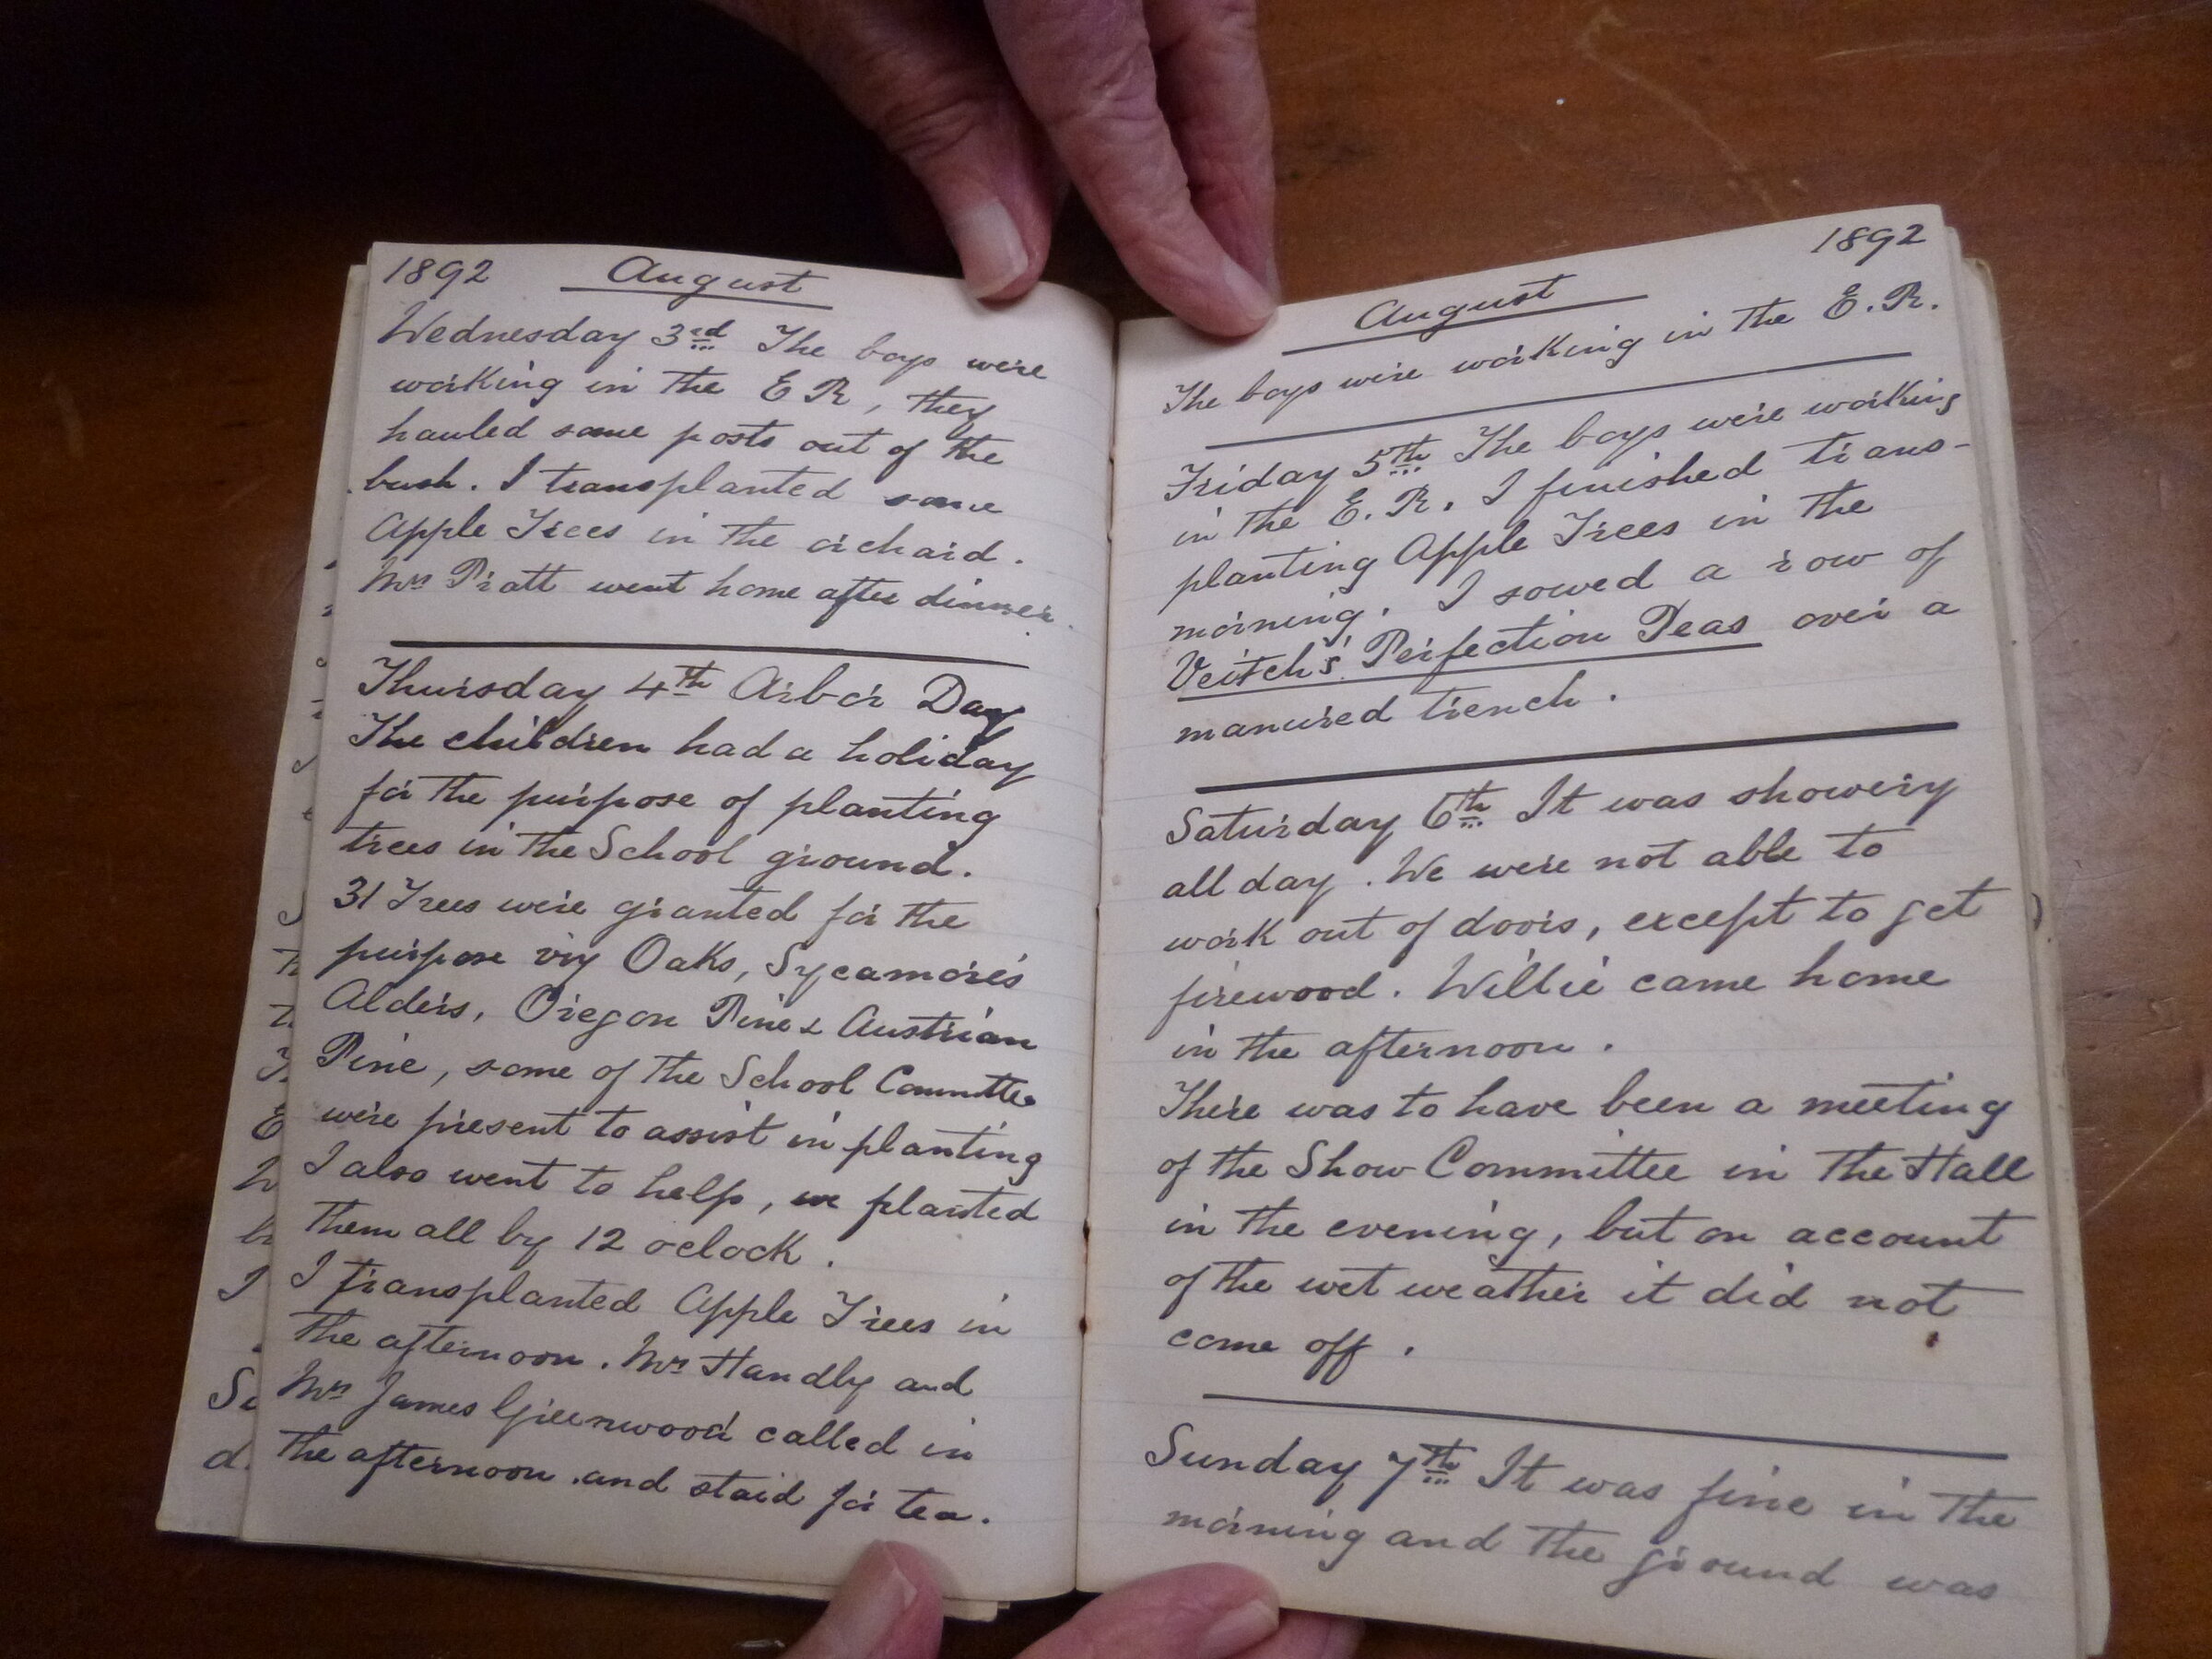 1892 August
Wednesday 3rd The boys were
working in the E R, they
hauled some posts out of the
bush. I transplanted some
Apple Trees in the orchard.
Mrs Pratt went home after dinner.
Thursday 4th Arbor Day
The children had a holiday
for the purpose of planting
trees in the School ground.
31 Trees were granted for the
purpose viz Oaks, Sycamores
Alders, Oregon Pine & Austrian
Pine, some of the School Committee
were present to assist in planting
I also went to help, we planted
them all by 12 oclock.
I transplanted Apple Trees in
the afternoon. Mrs Handly and
Mrs James Greenwood called in
the afternoon and staid for tea.
August 1892
The boys were working in the E.R.
Friday 5th The boys were working
in the E.R. I finished trans-
planting Apple Trees in the
morning. I sowed a row of
Veitch's Perfection Peas over a
manured trench.
Saturday 6th It was showery
all day. We were not able to
work out of doors, except to get
firewood. Willie came home
in the afternoon.
There was to have been a meeting
of the Show Committee in the Hall
in the evening, but on account
of the wet weather it did not
come off.
Sunday 7th It was fine in the
morning and the ground was